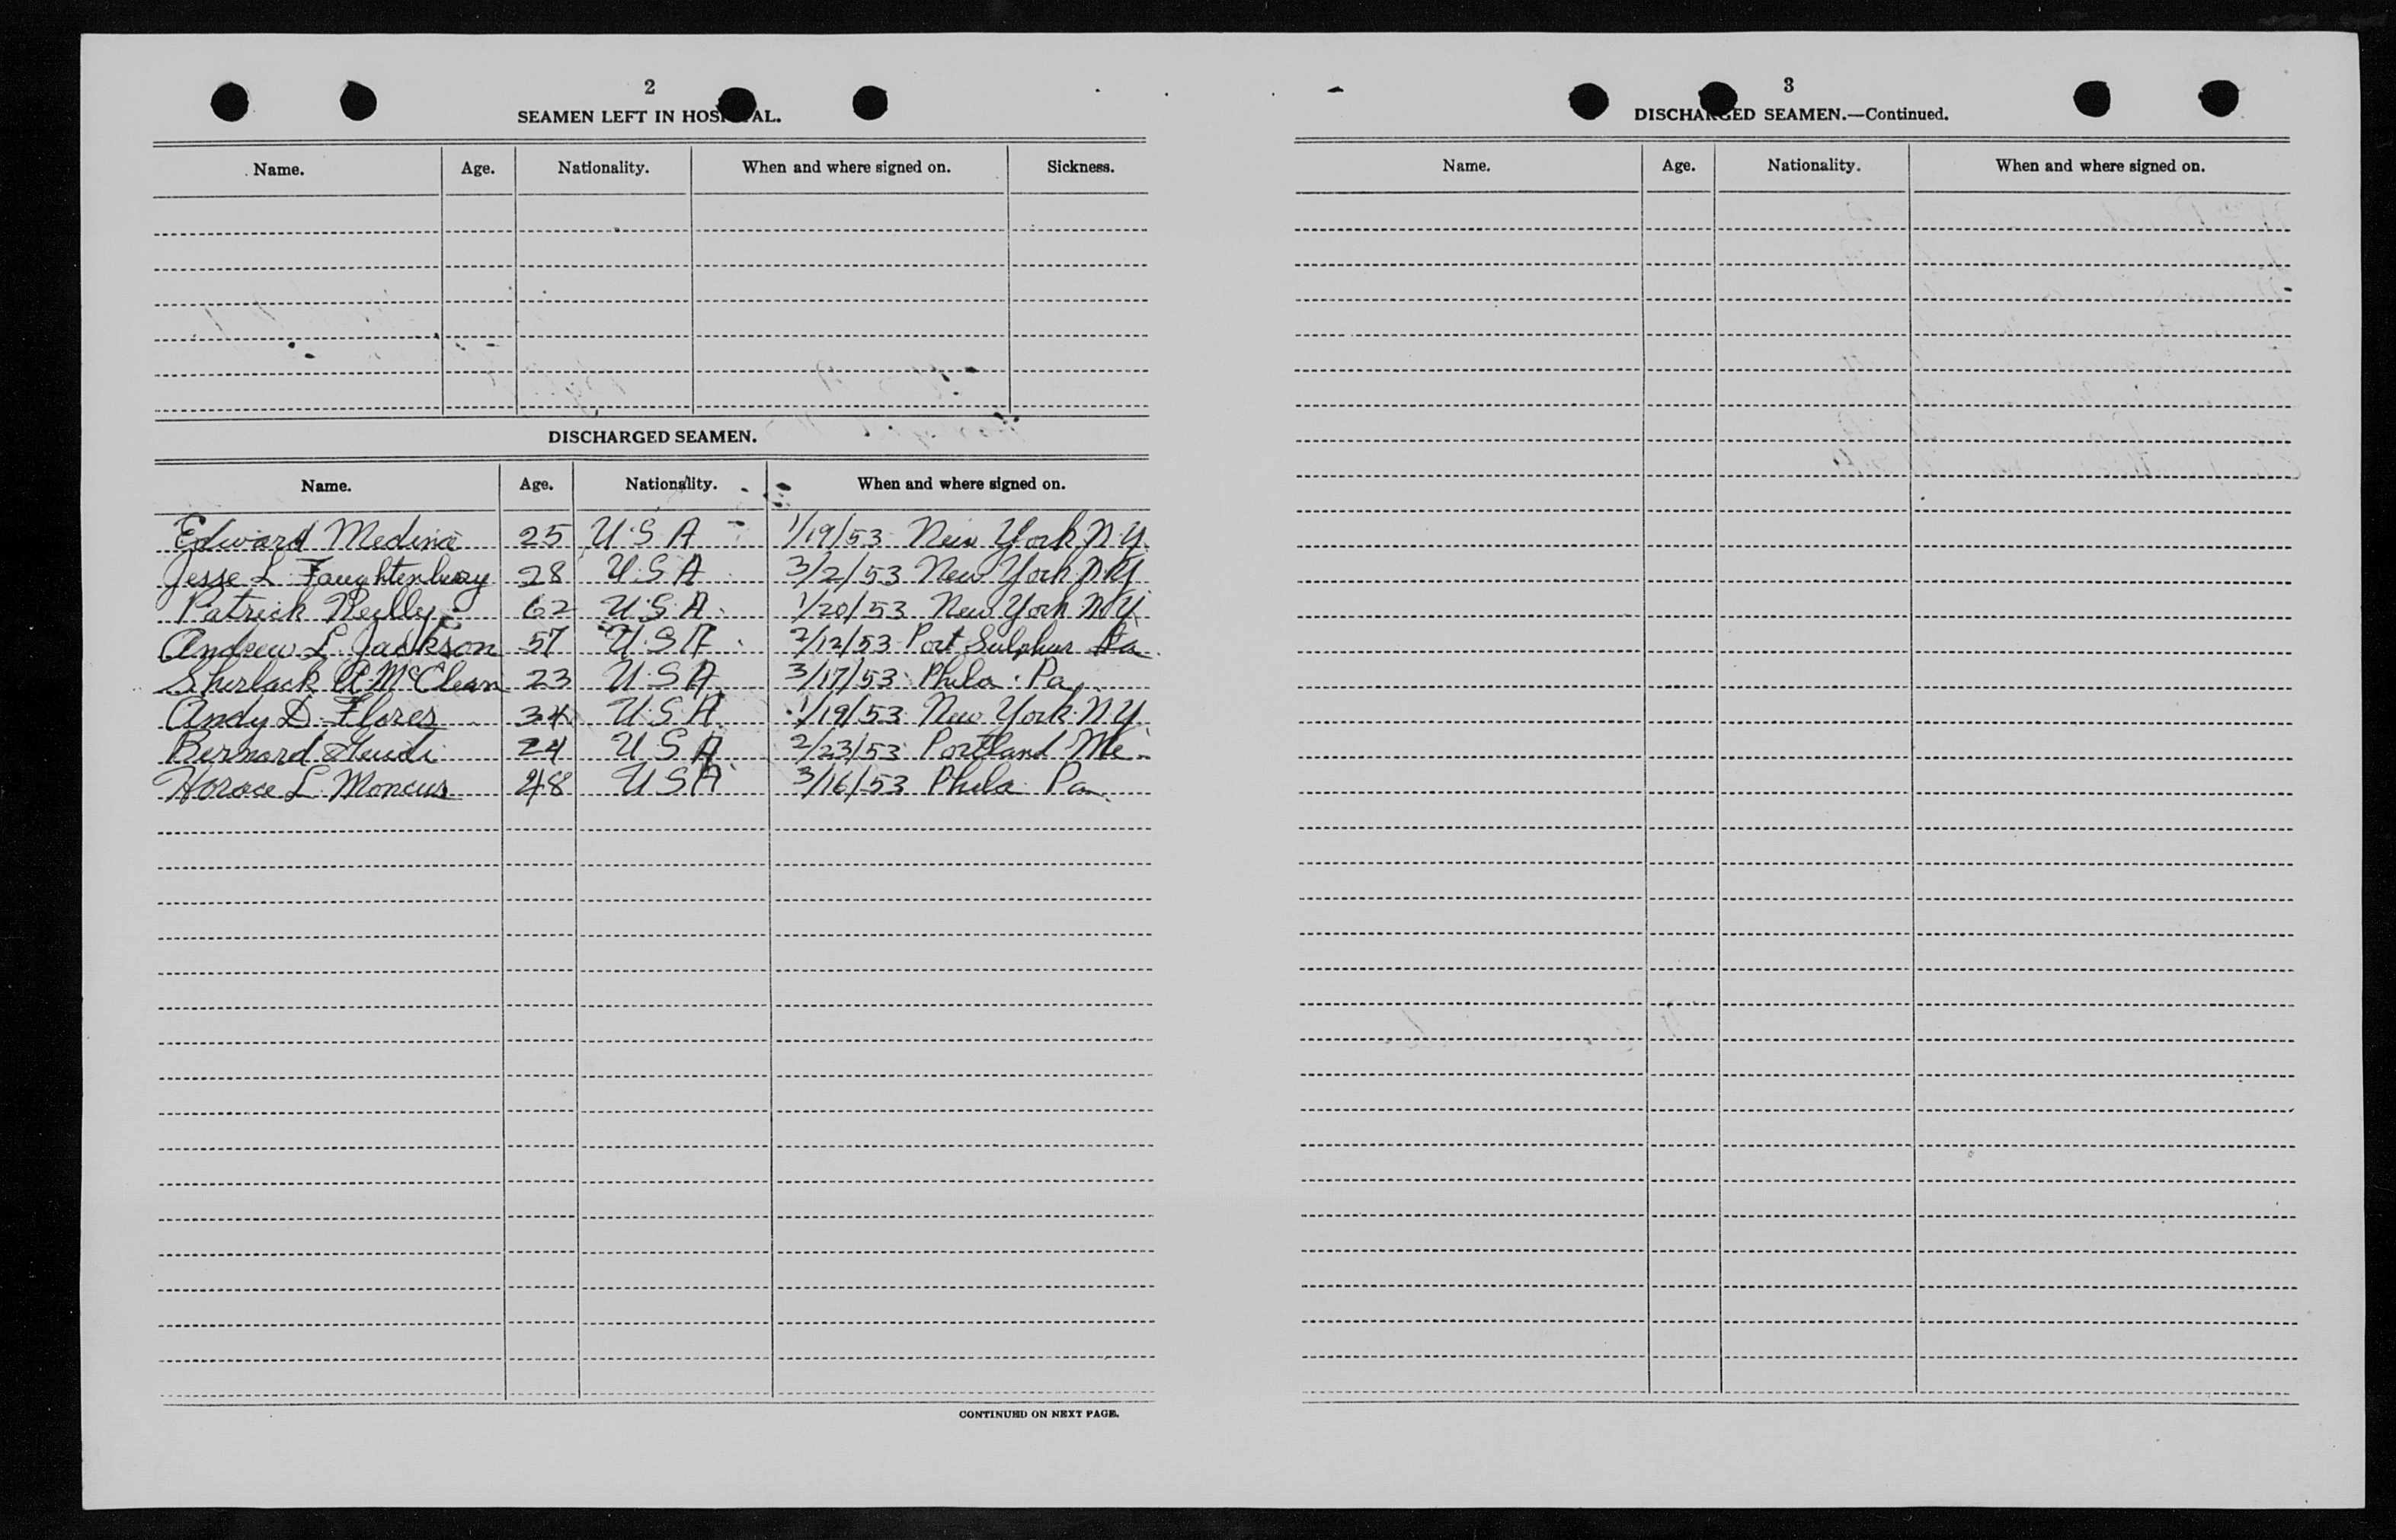 2
SEAMEN LEFT IN HOSPITAL.
Name. Age. Nationality. When and where signed on. Sickness.
DISCHARGED SEAMEN.
Name. Age. Nationality. When and where signed on.
Edward Medina 25 U.S.A 1/19/53 New York N.Y.
Jesse L. 28 U.S.A 3/2/53 New York N.Y.
Patrick Reilly 62 U.S.A. 1/20/53 New York N.Y.
Andrew L. Jackson 57 U.S.A. 2/12/53 Port Sulphur La.
Sherlack A. McClean 23 U.S.A 3/17/53 Phila. Pa.
Andy D. Flores 34 U.S.A. 1/19/53 New York N.Y.
Bernard 24 U.S.A 2/23/53 Portland Me.
Horace L. Moncus 48 U S A 3/16/53 Phila. Pa.
CONTINUED ON NEXT PAGE.
3
DISCHARGED SEAMEN.—Continued.
Name. Age. Nationality. When and where signed on.